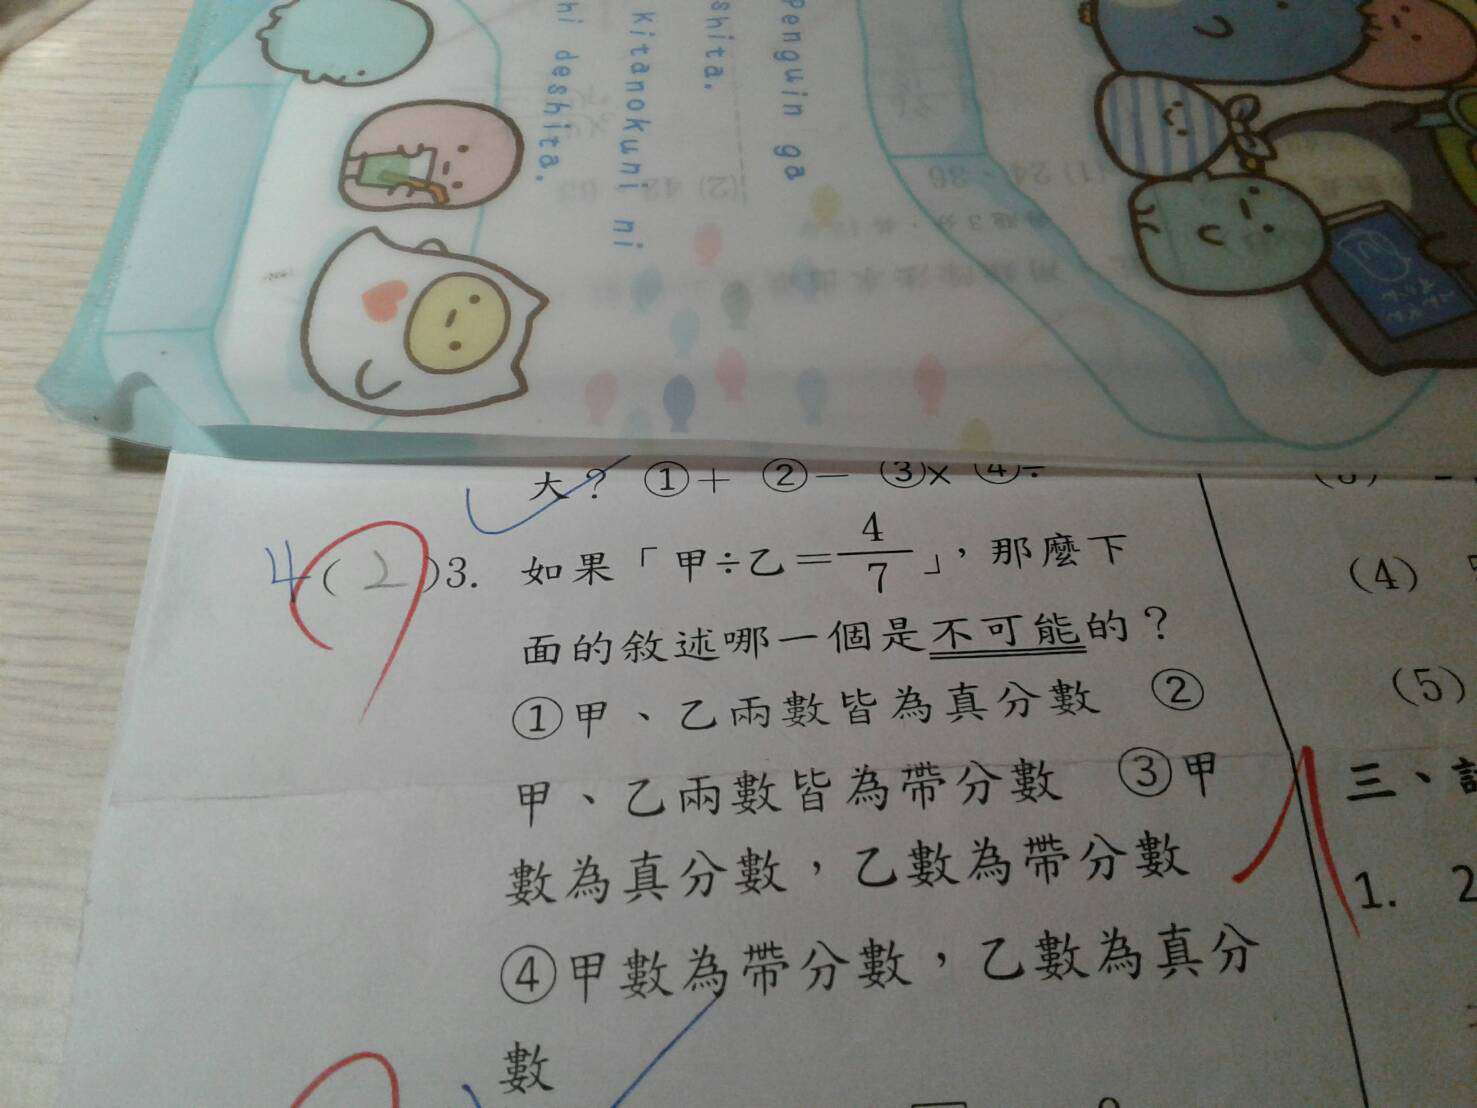 Penguin ga
shita.
kitanokuni ni
hi deshita.
(1) 24、36
(2) 42、
大？ ①＋ ②－ ③× ④÷
4(2)3. 如果「甲÷乙＝4/7」，那麼下
面的敘述哪一個是不可能的？
①甲、乙兩數皆為真分數 ②
甲、乙兩數皆為帶分數 ③甲
數為真分數，乙數為帶分數
④甲數為帶分數，乙數為真分
數
(4)
(5)
三、
1. 2